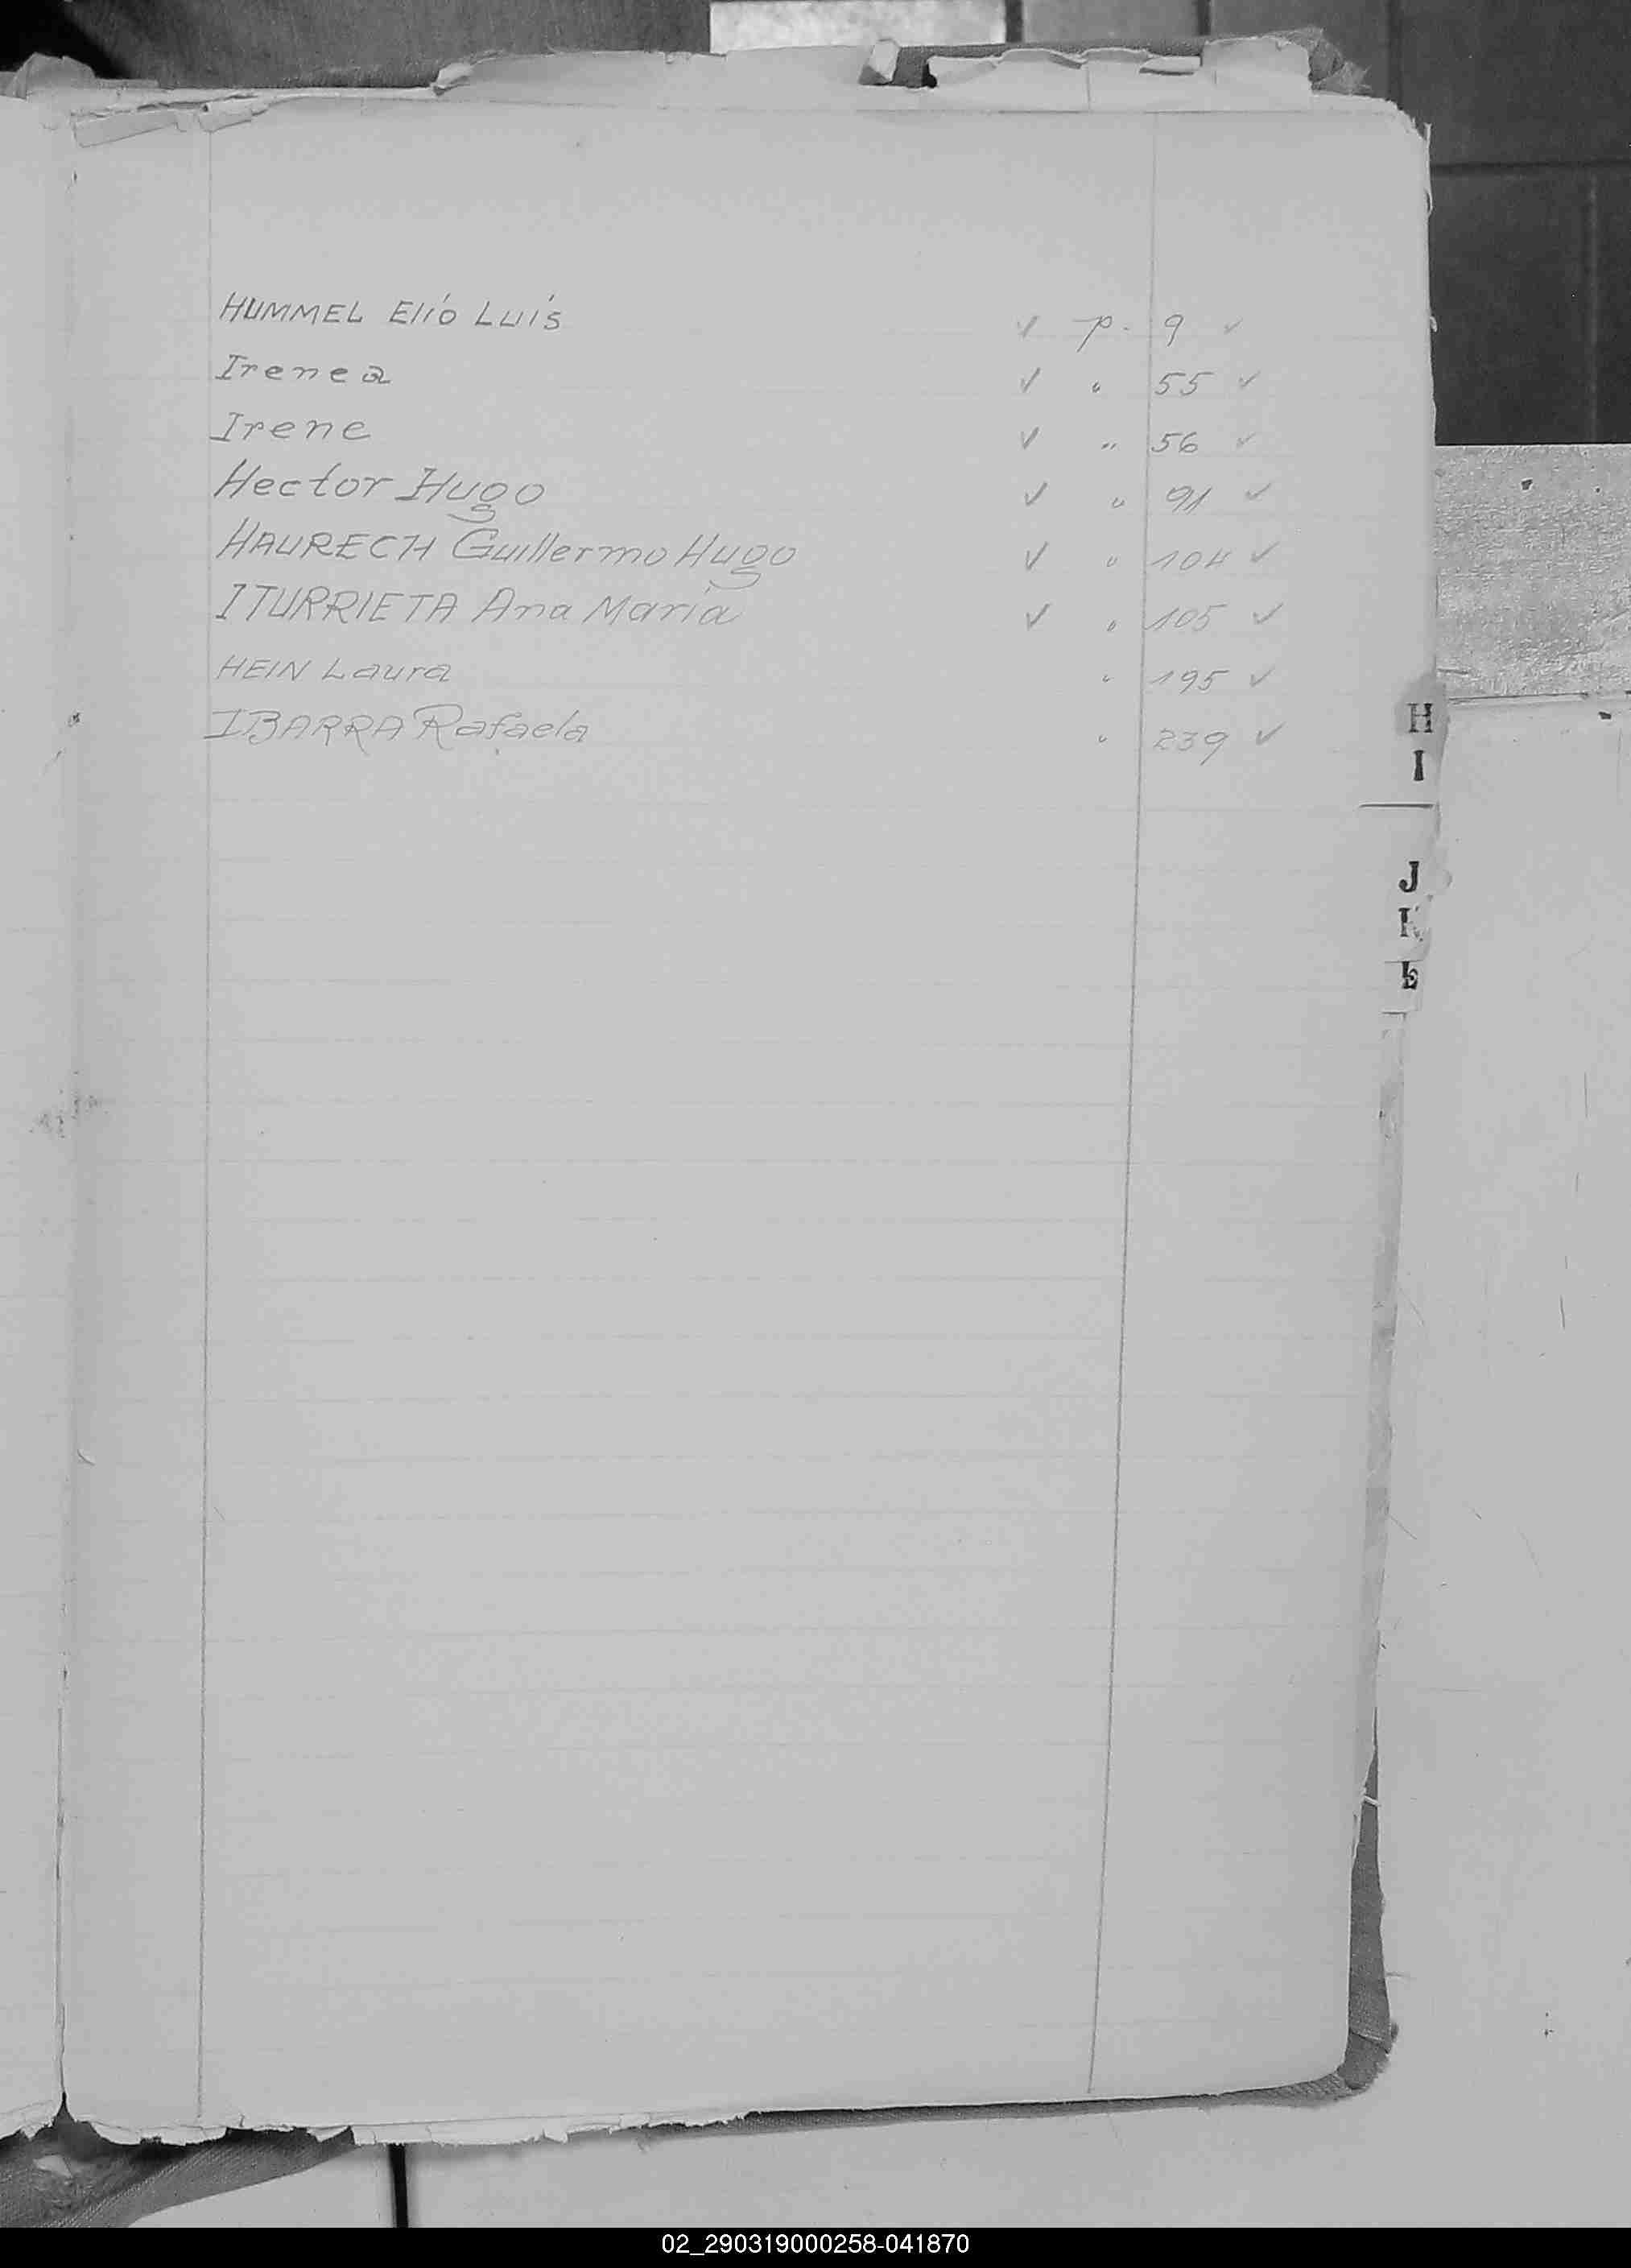 HUMMEL Elío Luís ✓ p. 9 ✓
Irenea ✓ " 55 ✓
Irene ✓ " 56 ✓
Hector Hugo ✓ " 91 ✓
HAURECH Guillermo Hugo ✓ " 104 ✓
ITURRIETA Ana María ✓ " 105 ✓
HEIN Laura " 195 ✓
IBARRA Rafaela " 239 ✓
H
I
J
K
L
02_290319000258-041870